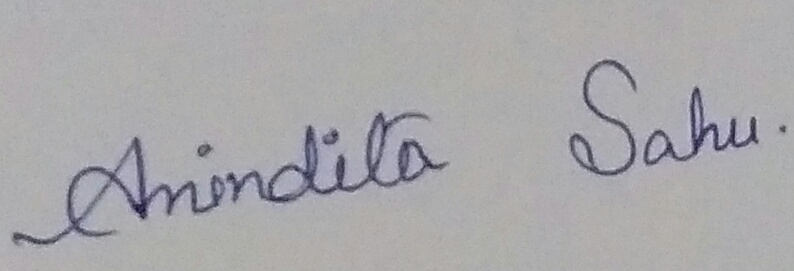 Anindita Sahu.